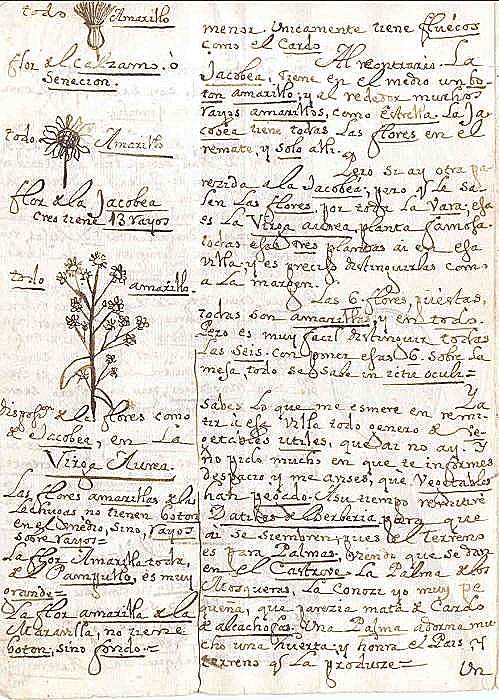 todo Amarillo
flor de el Calzamo. ò
Senecion.
todo Amarillo
flor de la Jacobea
creo tiene 13 rayos
todo amarillo.
de las flores como
de Jacobea, en La
Virga Aurea.
Las flores amarillas de las
Lachugas no tienen boton
en el medio, Sino, rayos
sobre rayos=
La flor Amarilla toda,
de el es muy
grande=
La flor amarilla de la
Maravilla, no tiene
boton, Sino fondo=
menor. Unicamente tiene fluecos
como el Cardo
Al contrario. La
Jacobea, tiene en el medio un bo-
ton amarillo, y al rededor muchos
rayos amarillos, como estrella. La Ja
cobea tiene todas las flores en el
remate, y solo alli.
Pero Si ay otra pa-
rezida a la Jacobea, pero qe le Sa-
len Las flores por toda La Vara; esa
es La Virga aurea, planta famosa.
todas esas tres plantas ai en esa
villa, y es preciso distinguirlas como
a La margen.
Las 6 flores, puestas,
todas son amarillas, y en todo.
Pero es muy facil distinguir todas
Las Seis. con poner esas 6. Sobre La
mesa, todo se Sabe in ictu oculi=
Ya
Sabes Lo que me esmere en remi-
tir a esa Villa todo genero de Ve-
getables utiles, que ai no ay. Y
no pido mucho en que te informes
despacio, y me avises, que Vegetables
han pegado. A su tiempo remitiré
Datiles de Berberia para que
ai se siembren; pues de el terreno
es para Palmas. que se dan
en el Castrove. La Palma de los
Mosqueras, La Conozi yo muy pe
queña, que parezia mata de Cardo
de alcachofas. Una Palma adorna mu
cho una huerta, y honra el Pais, y
terreno qe La produze=
Un